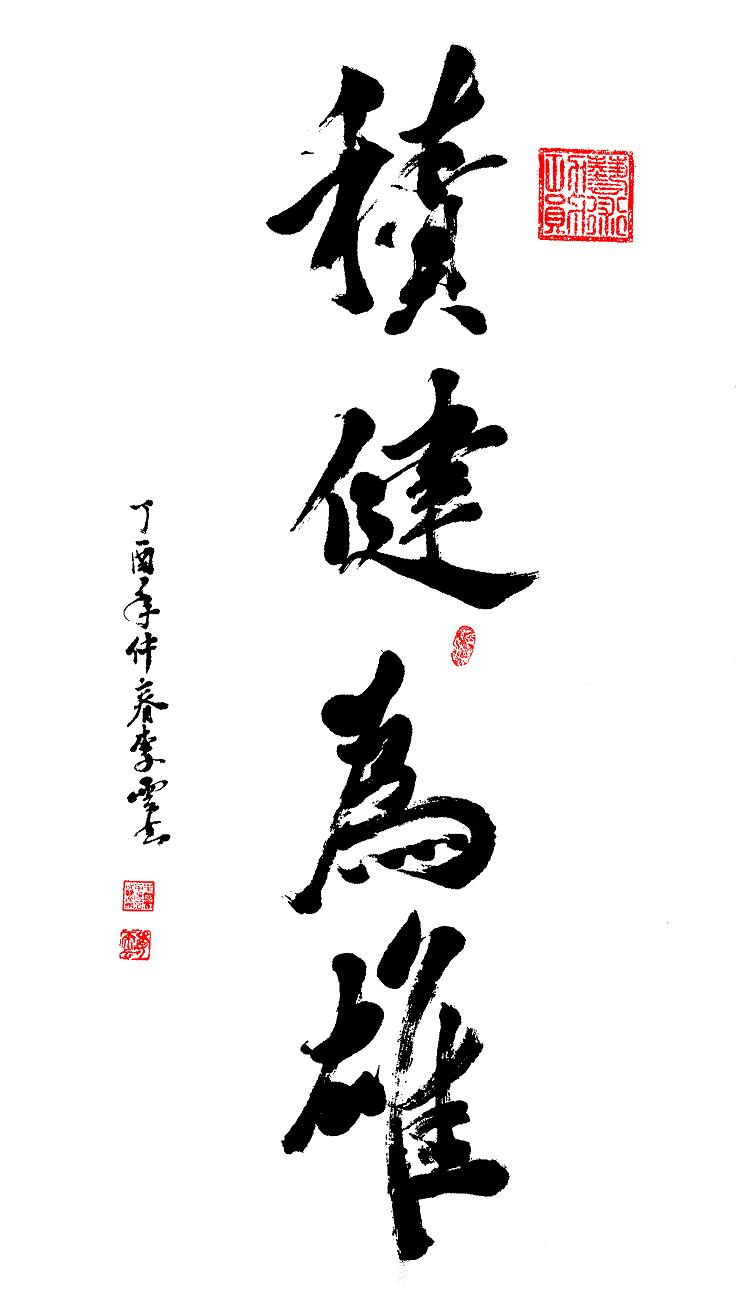 積健為雄
丁酉年仲春李雲